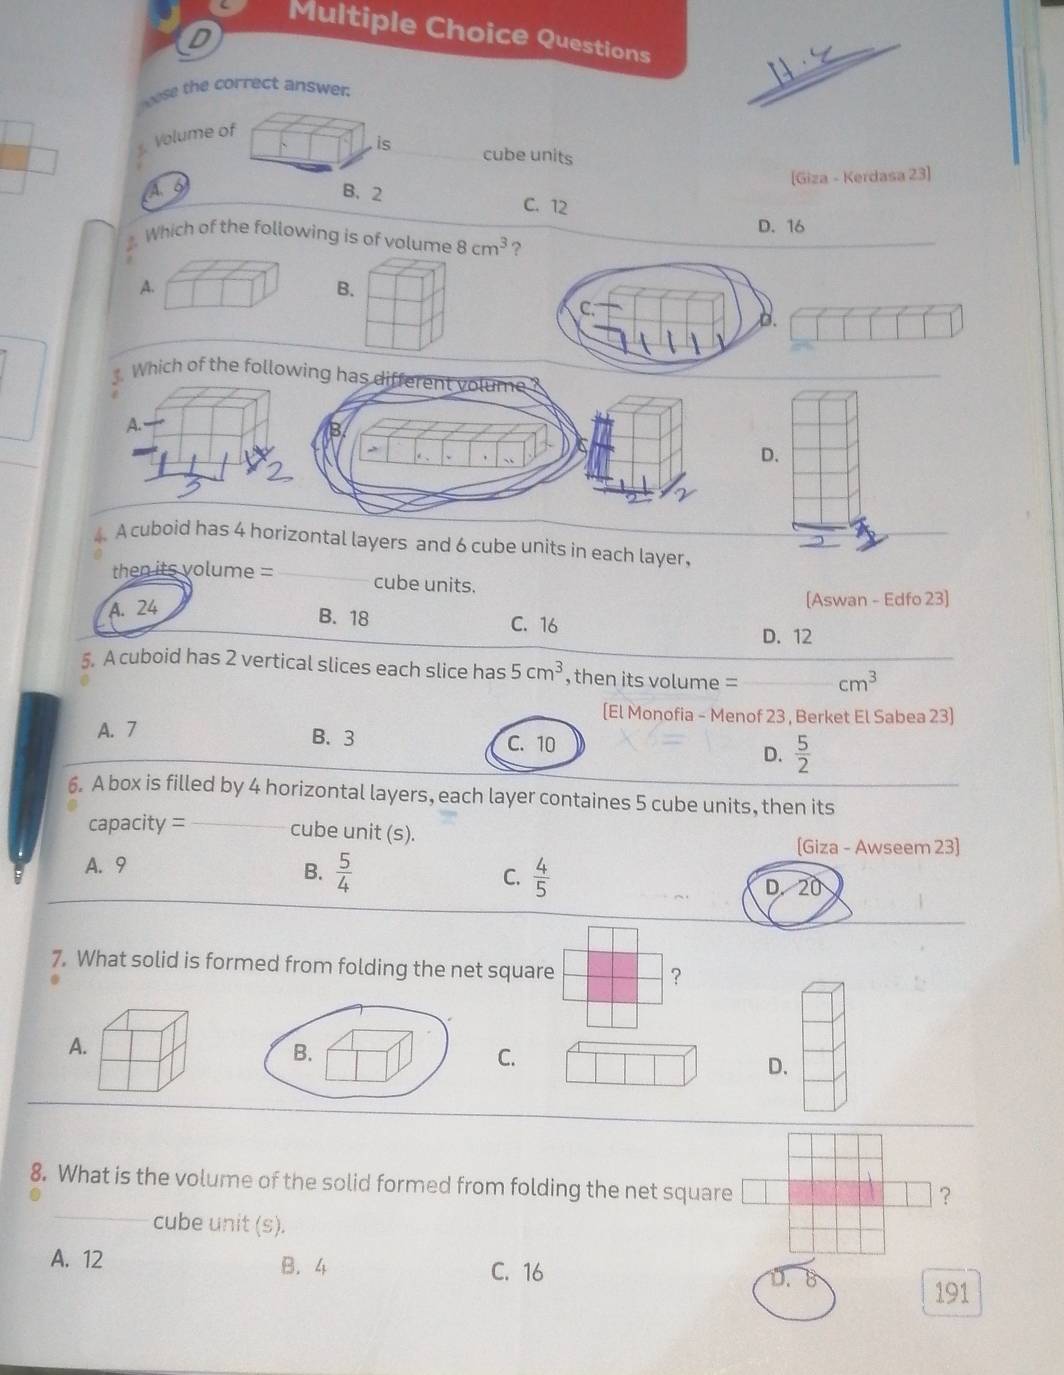 D
Multiple Choice Questions
H.w
the correct answer.
Volume of is cube units
[Giza - Kerdasa 23]
A. 6 B. 2 C. 12 D. 16
2. Which of the following is of volume 8 cm³ ?
A. B. C. D.
3. Which of the following has different volume ?
A. B. C D.
3 2 2 2 2
4. A cuboid has 4 horizontal layers and 6 cube units in each layer,
then its volume = cube units.
[Aswan - Edfo 23]
A. 24 B. 18 C. 16 D. 12
5. A cuboid has 2 vertical slices each slice has 5 cm³, then its volume = cm³
[El Monofia - Menof 23, Berket El Sabea 23]
A. 7 B. 3 C. 10 D. 5/2
6. A box is filled by 4 horizontal layers, each layer containes 5 cube units, then its
capacity = cube unit (s).
[Giza - Awseem 23]
A. 9 B. 5/4 C. 4/5 D. 20
7. What solid is formed from folding the net square ?
A. B. C. D.
8. What is the volume of the solid formed from folding the net square ?
cube unit (s).
A. 12 B. 4 C. 16 D. 8
191